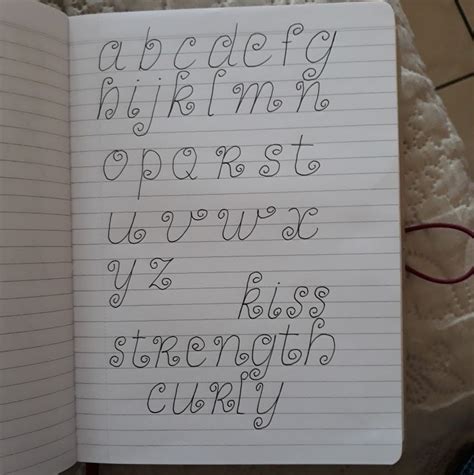 a b c d e f g
h i j k l m n
o p Q R s t
u v w x
y z
kiss
stRength
cuRly